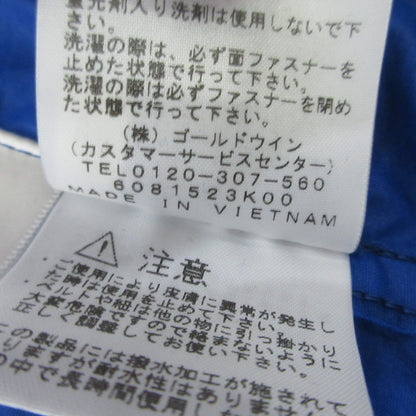 蛍光剤入り洗剤は使用しないで下
さい。
洗濯の際は、必ず面ファスナーを
止めた状態で行って下さい。
洗濯の際は必ずファスナーを閉め
た状態で行って下さい。
(株) ゴールドウイン
(カスタマーサービスセンター)
TEL0120-307-560
6081523K00
MADE IN VIETNAM
注意
・ご使用により皮膚に異常が発生し
た時は使用を止めて下さい。
・ベルトや紐は他の物に引っ掛かり
大変危険ですので絡まないように
正しく調整してお使い下さい。
この製品には撥水加工が施されて
りますが耐水性はありま
の中で長時間使用し